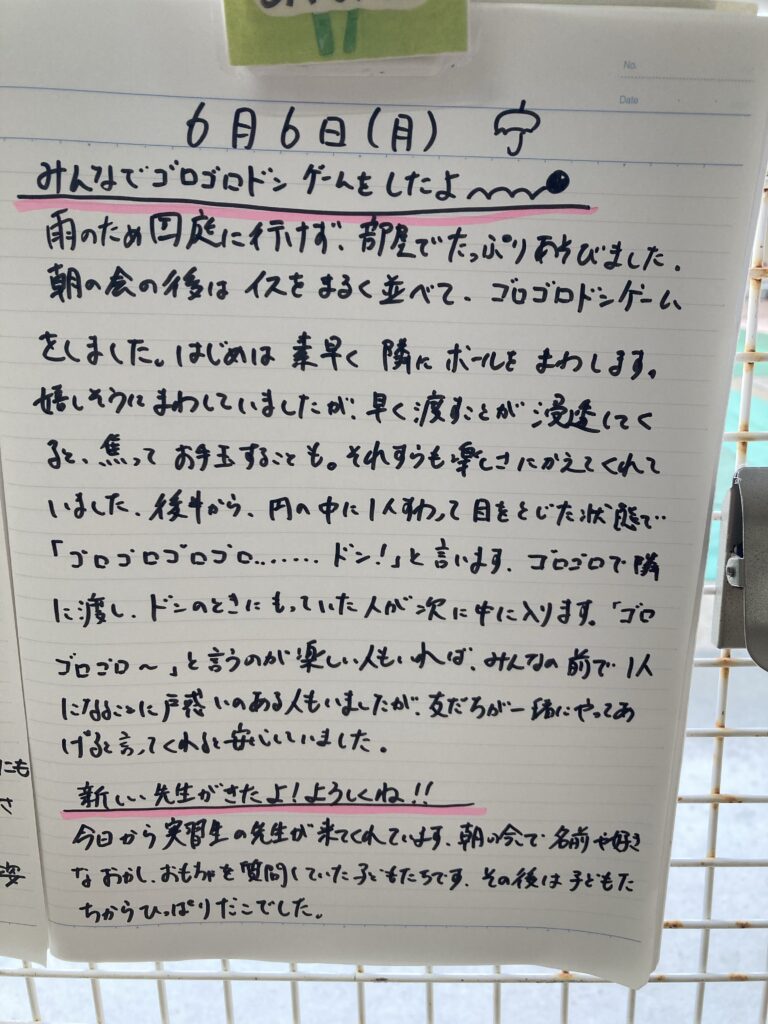 No.
Date
6月6日(月)
みんなでゴロゴロドンゲームをしたよ
雨のため園庭に行けず、部屋でたっぷりあそびました。
朝の会の後はイスをまるく並べて、ゴロゴロドンゲーム
をしました。はじめは素早く隣にボールをまわします。
嬉しそうにまわしていましたが、早く渡すことが浸透してく
ると、焦ってお手玉することも。それすらも楽しさにかえてくれて
いました。後半から、円の中に1人すわって目をとじた状態で
「ゴロゴロゴロゴロ……… ドン!」と言います。ゴロゴロで隣
に渡し、ドンのときにもっていた人が次に中に入ります。「ゴロ
ゴロゴロ〜」と言うのが楽しい人もいれば、みんなの前で1人
になることに戸惑いのある人もいましたが、友だちが一緒にやってあ
げると言ってくれると安心していました。
新しい先生がきたよ!ようしくね!!
今日から実習生の先生が来てくれています。朝の会で名前や好き
なおかし、おもちゃを質問していた子どもたちです。その後は子どもた
ちからひっぱりだこでした。
にも
さ